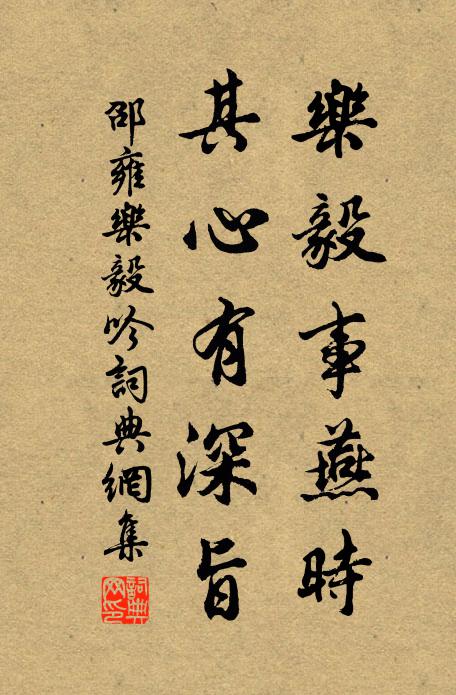 樂毅事燕時
其心有深旨
邵雍樂毅吟詞典網集
詞典
网印